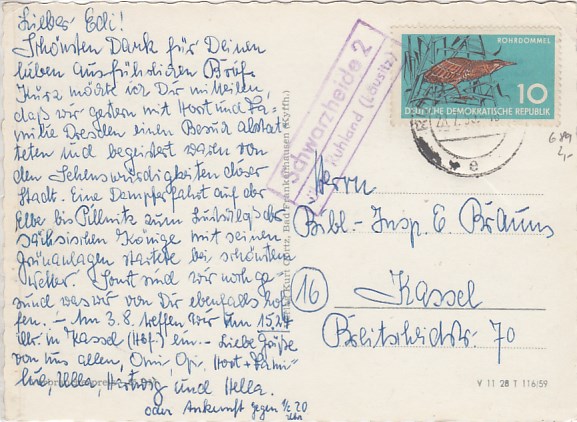 Lieber Edi!
Schönsten Dank für Deinen
lieben ausführlichen Brief.
Kurz möchte ich Dir mitteilen,
daß wir gestern mit Horst und Fa-
milie Dresden einen Besuch abstat
teten und begeistert waren von
den Sehenswürdigkeiten dieser
Stadt. Eine Dampferfahrt auf der
Elbe bis Pillnitz zum Lustschloß der
sächsischen Könige mit seinen
Grünanlagen startete bei schönstem
Wetter. Sonst sind wir noch ge-
sund was wir von Dir ebenfalls hof
fen. – Am 3.8. treffen wir um 1524
Uhr in Kassel (Hbf.) ein. – Liebe Grüße
von uns allen, Omi, Opi, Horst + Fami-
lie, Ulla, Hertwig und Hella.
oder Ankunft gegen 1/2 20
Uhr
Schwarzheide 2
Ruhland (Lausitz)
ROHRDOMMEL
10
DEUTSCHE DEMOKRATISCHE REPUBLIK
e
689
Kurt Görtz, Bad Frankenhausen (Kyffh.)
Herrn
Bibl.-Insp. E Brauns
16 Kassel
Breitscheidstr. 70
V 11 28 T 116/59